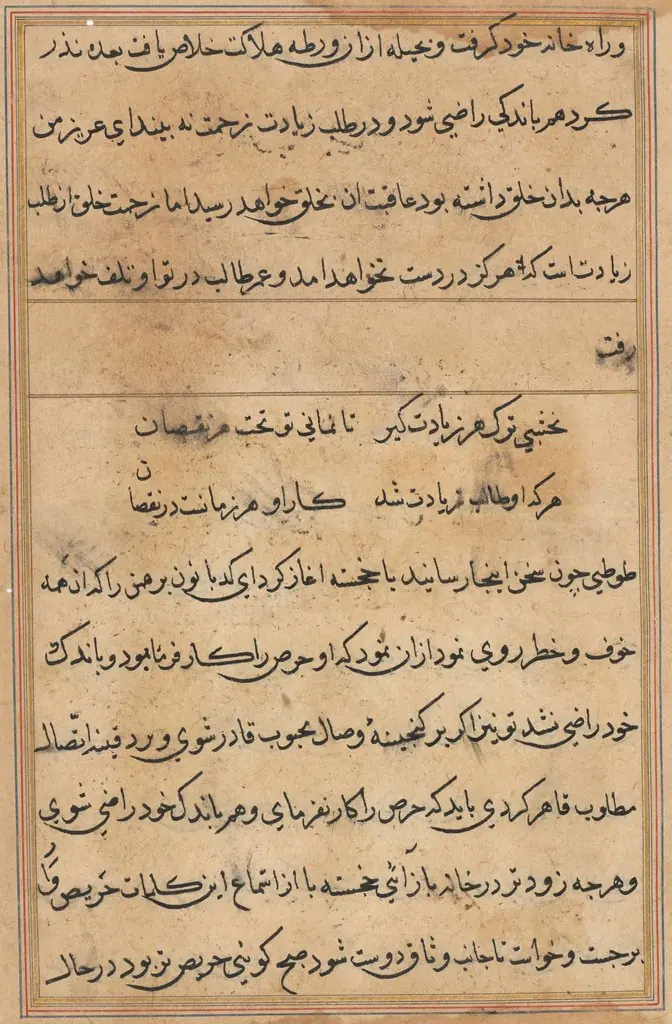 و راه خانه خود گرفت و بحیله از ان ورطه هلاکت خلاص یافت بعده نذر
کرد همر باندکی راضی شود و در طلب زیادت زحمت نه بیند ای عزیز من
هرجه بدان خلق داشته بود عاقبت ان بخلق خواهد رسید اما زحمت خلق از طلب
زیادت است که هرکز در دست نخواهد امد و عمر طالب در تو او تلف خواهد
رفت
نخشبی ترک هر زیادت کیر تا نمانی تو تحت هر نقصان
هرکه او طالب زیادت شد کار او هر زمانست در نقصان
طوطی چون سخن اینجا رسانید با خجسته اغاز کرد ای کدبانون برهمن را که ان همه
خوف و خطر روی نمود ازان نمود که او حرص را کار فرمابود و باندک
خود راضی نشد تو نیز اکر بر کنجینهٔ وصال محبوب قادر شوی و بر دفینه اتّصال
مطلوب قاهر کردی باید که حرص را کار نفرمای و همر باندک خود راضی شوی
و هرجه زودتر در خانه باز آئی خجسته با از استماع این کلمات حریص وار
برجست و خواست تا جانب وثاق دوست شود صبح کوئی حریص تر بود در حال